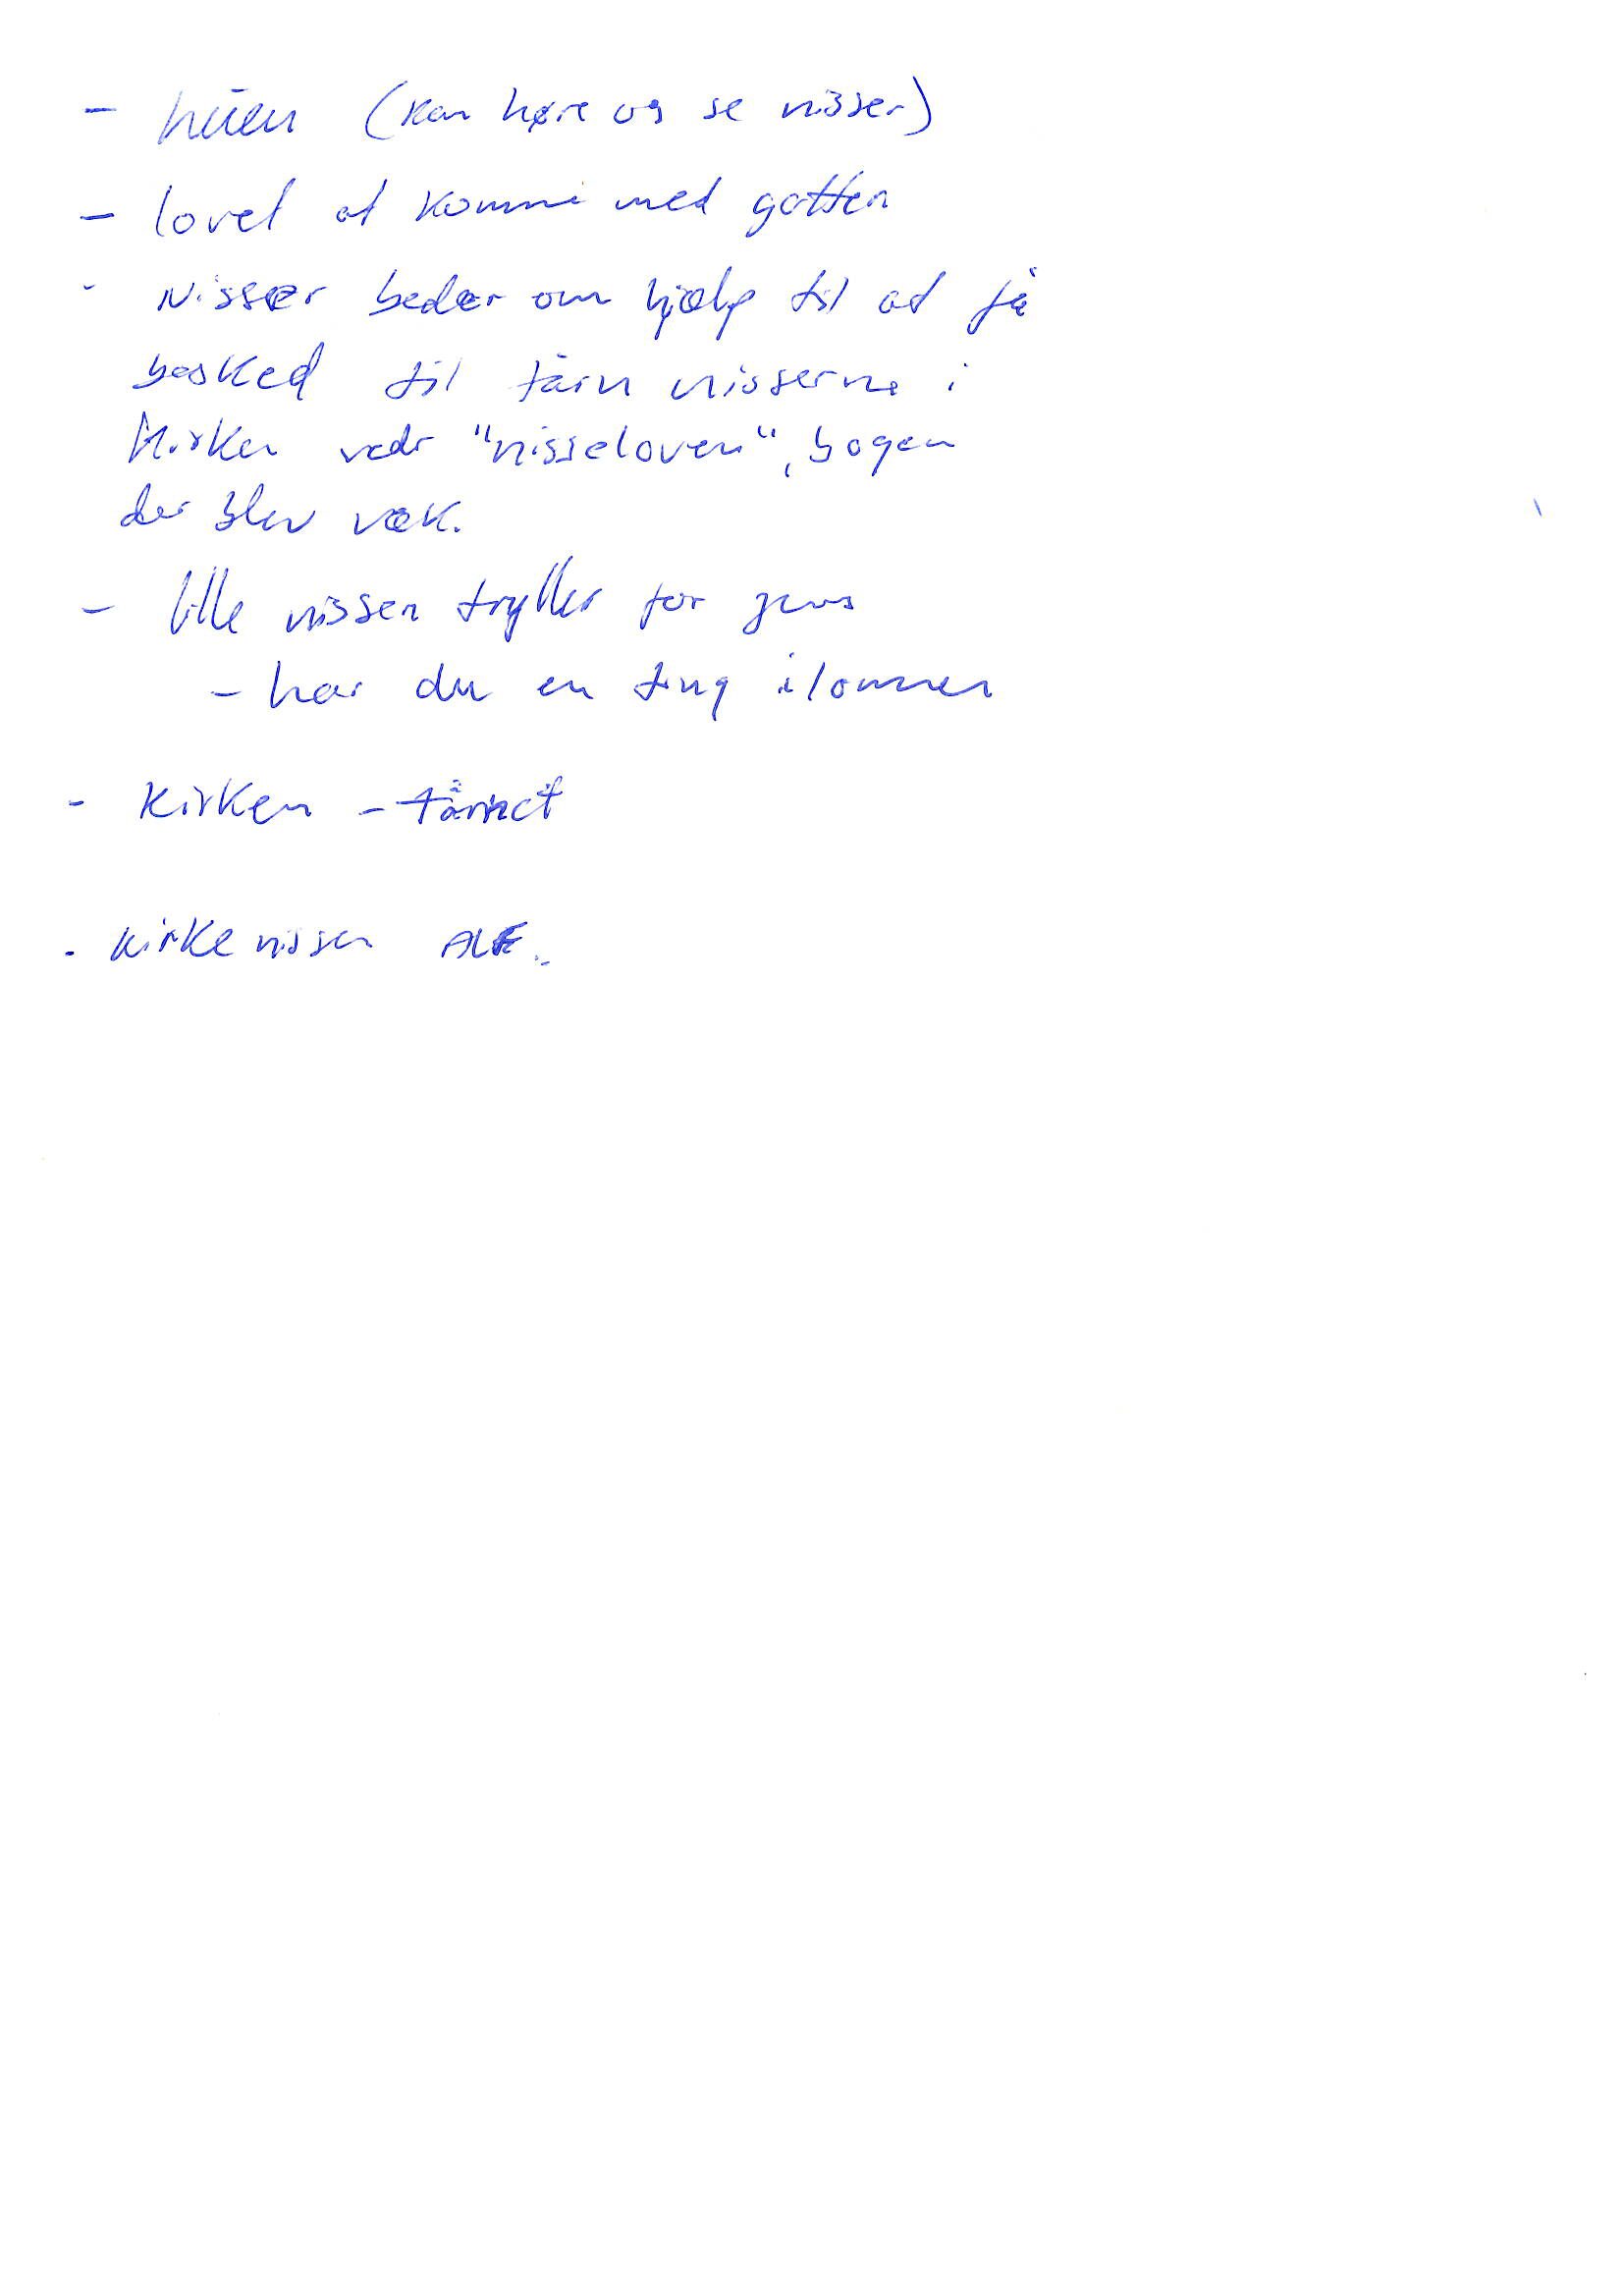 - huen (kan høre og se nisser)
- lovet at komme med gotten
- Nisser beder om hjælp til at få
besked til tårn nisserne i
Kirken vedr "nisseloven", bogen
der blev væk.
- lille nissen tryller for jens
- har du en ting i lommen
- Kirken - tårnet
- kirke nissen ALF.